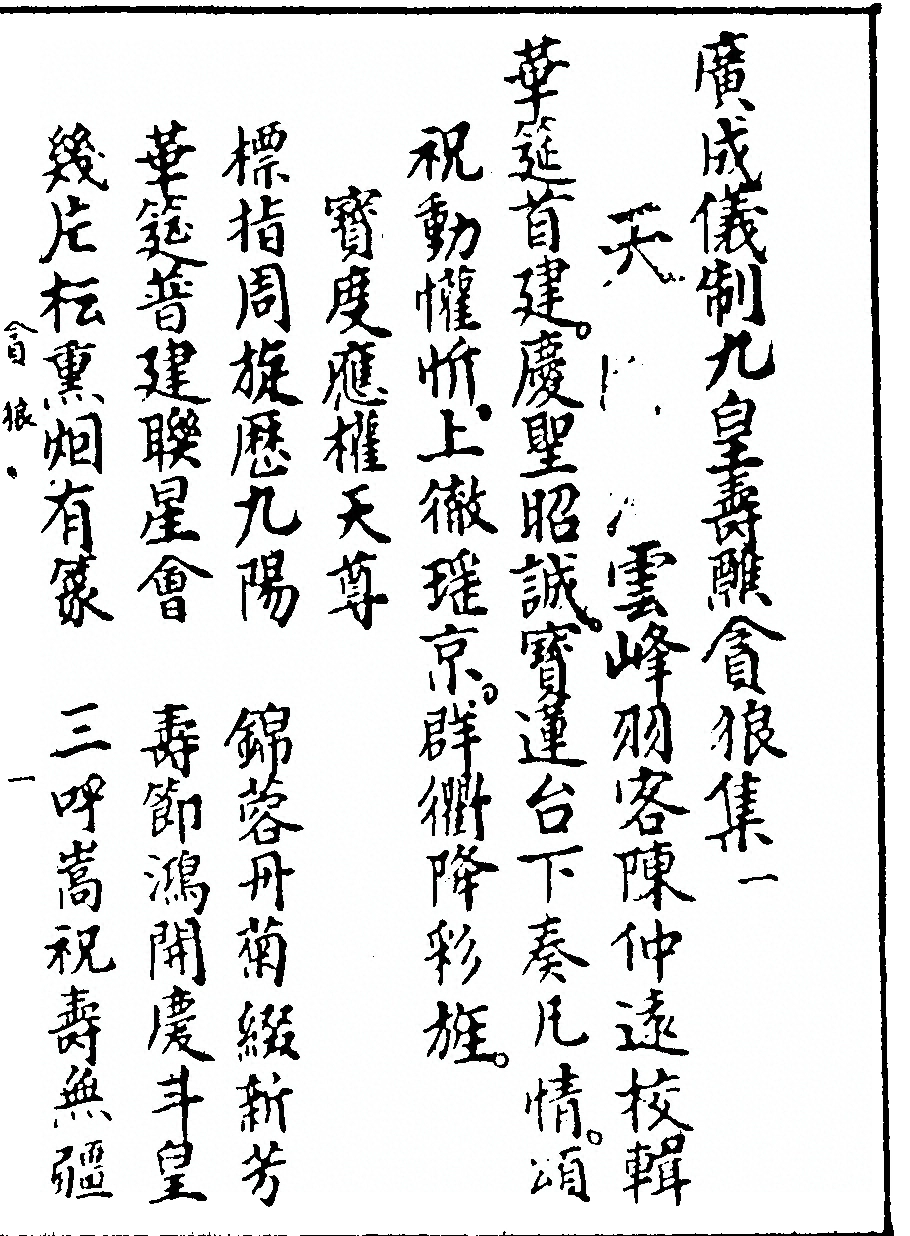 廣成儀制九皇壽醮貪狼集一
天 雲峰羽客陳仲遠校輯
華筵首建。慶聖昭誠。寶蓮台下奏凡情。頌
祝動懽忻。上徹瑶京。群衢降彩旌。
寳度應權天尊
標指周旋歷九陽 錦蓉丹菊綴新芳
華筵普建聯星會 壽節鴻開慶斗皇
幾片枟熏烟有篆 三呼嵩祝壽無疆
貪狼
一